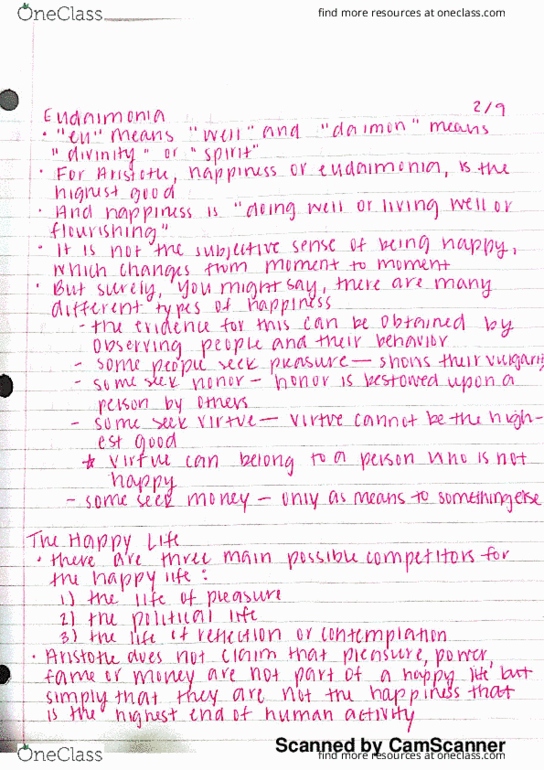 OneClass
find more resources at oneclass.com
2/9
Eudaimonia
• "eu" means "well" and "daimon" means
"divinity" or "spirit"
• For Aristotle, happiness or eudaimonia, is the
highest good
• And happiness is "doing well or living well or
flourishing"
• It is not the subjective sense of being happy,
which changes from moment to moment
• But surely, you might say, there are many
different types of happiness
- the evidence for this can be obtained by
observing people and their behavior
- some people seek pleasure — shows their vulgarity
- some seek honor – honor is bestowed upon a
person by others
- some seek virtue — virtue cannot be the high-
est good
* virtue can belong to a person who is not
happy
- some seek money – only as means to something else
The Happy Life
• there are three main possible competitors for
the happy life:
1) the life of pleasure
2) the political life
3) the life of reflection or contemplation
• Aristotle does not claim that pleasure, power,
fame or money are not part of a happy life, but
simply that they are not the happiness that
is the highest end of human activity
Scanned by CamScanner
OneClass
find more resources at oneclass.com